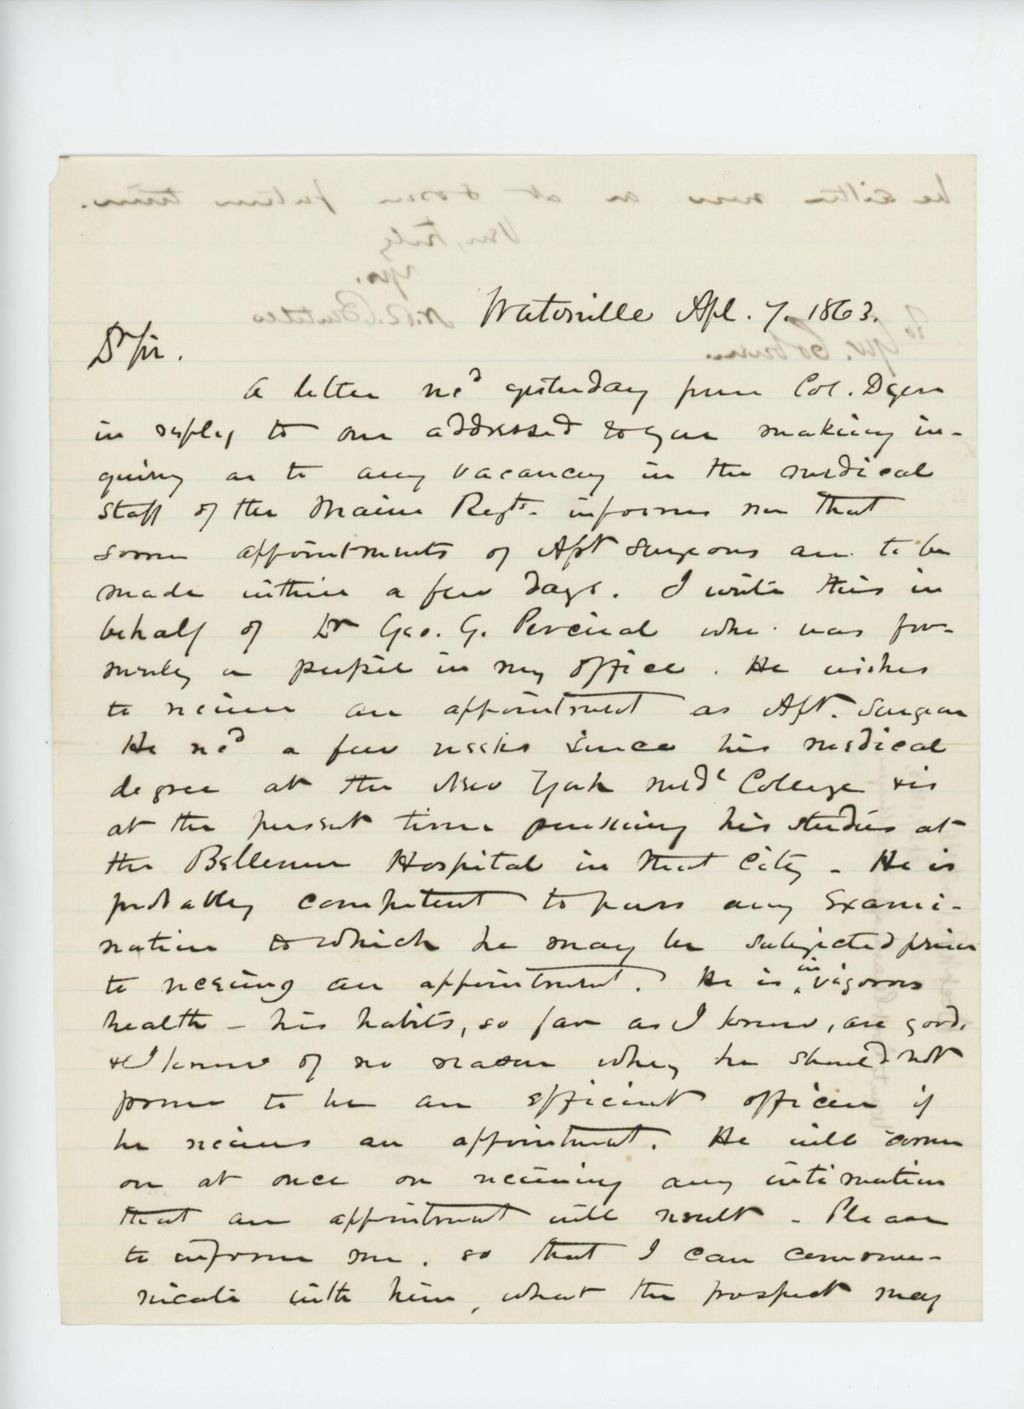 Waterville Apl. 7. 1863.
Dr Sir.
A letter recd yesterday from Col. Dyer
in reply to one addressed to you making in-
quiry as to any vacancy in the medical
staff of the Maine Regts. informs me that
some appointments of Asst Surgeons are to be
made within a few days. I write this in
behalf of Dr Geo. G. Percival who was for-
merly a pupil in my office. He wishes
to receive an appointment as Asst. Surgeon
He recd a few weeks since his medical
degree at the New York Medl College & is
at the present time pursuing his studies at
the Bellevue Hospital in that City - He is
probably competent to pass any Exami-
nation to which he may be subjected prior
to receiving an appointment. He is in vigorous
health - his habits, so far as I know, are good.
& I know of no reason why he should not
prove to be an efficient officer if
he receives an appointment. He will come
on at once on receiving any intimation
that an appointment will result - Please
to inform me, so that I can commu-
nicate with him, what the prospect may
be either now or at some future time.
Very truly
Yrs.
N. R. Boutelle
To
Gov. Coburn.